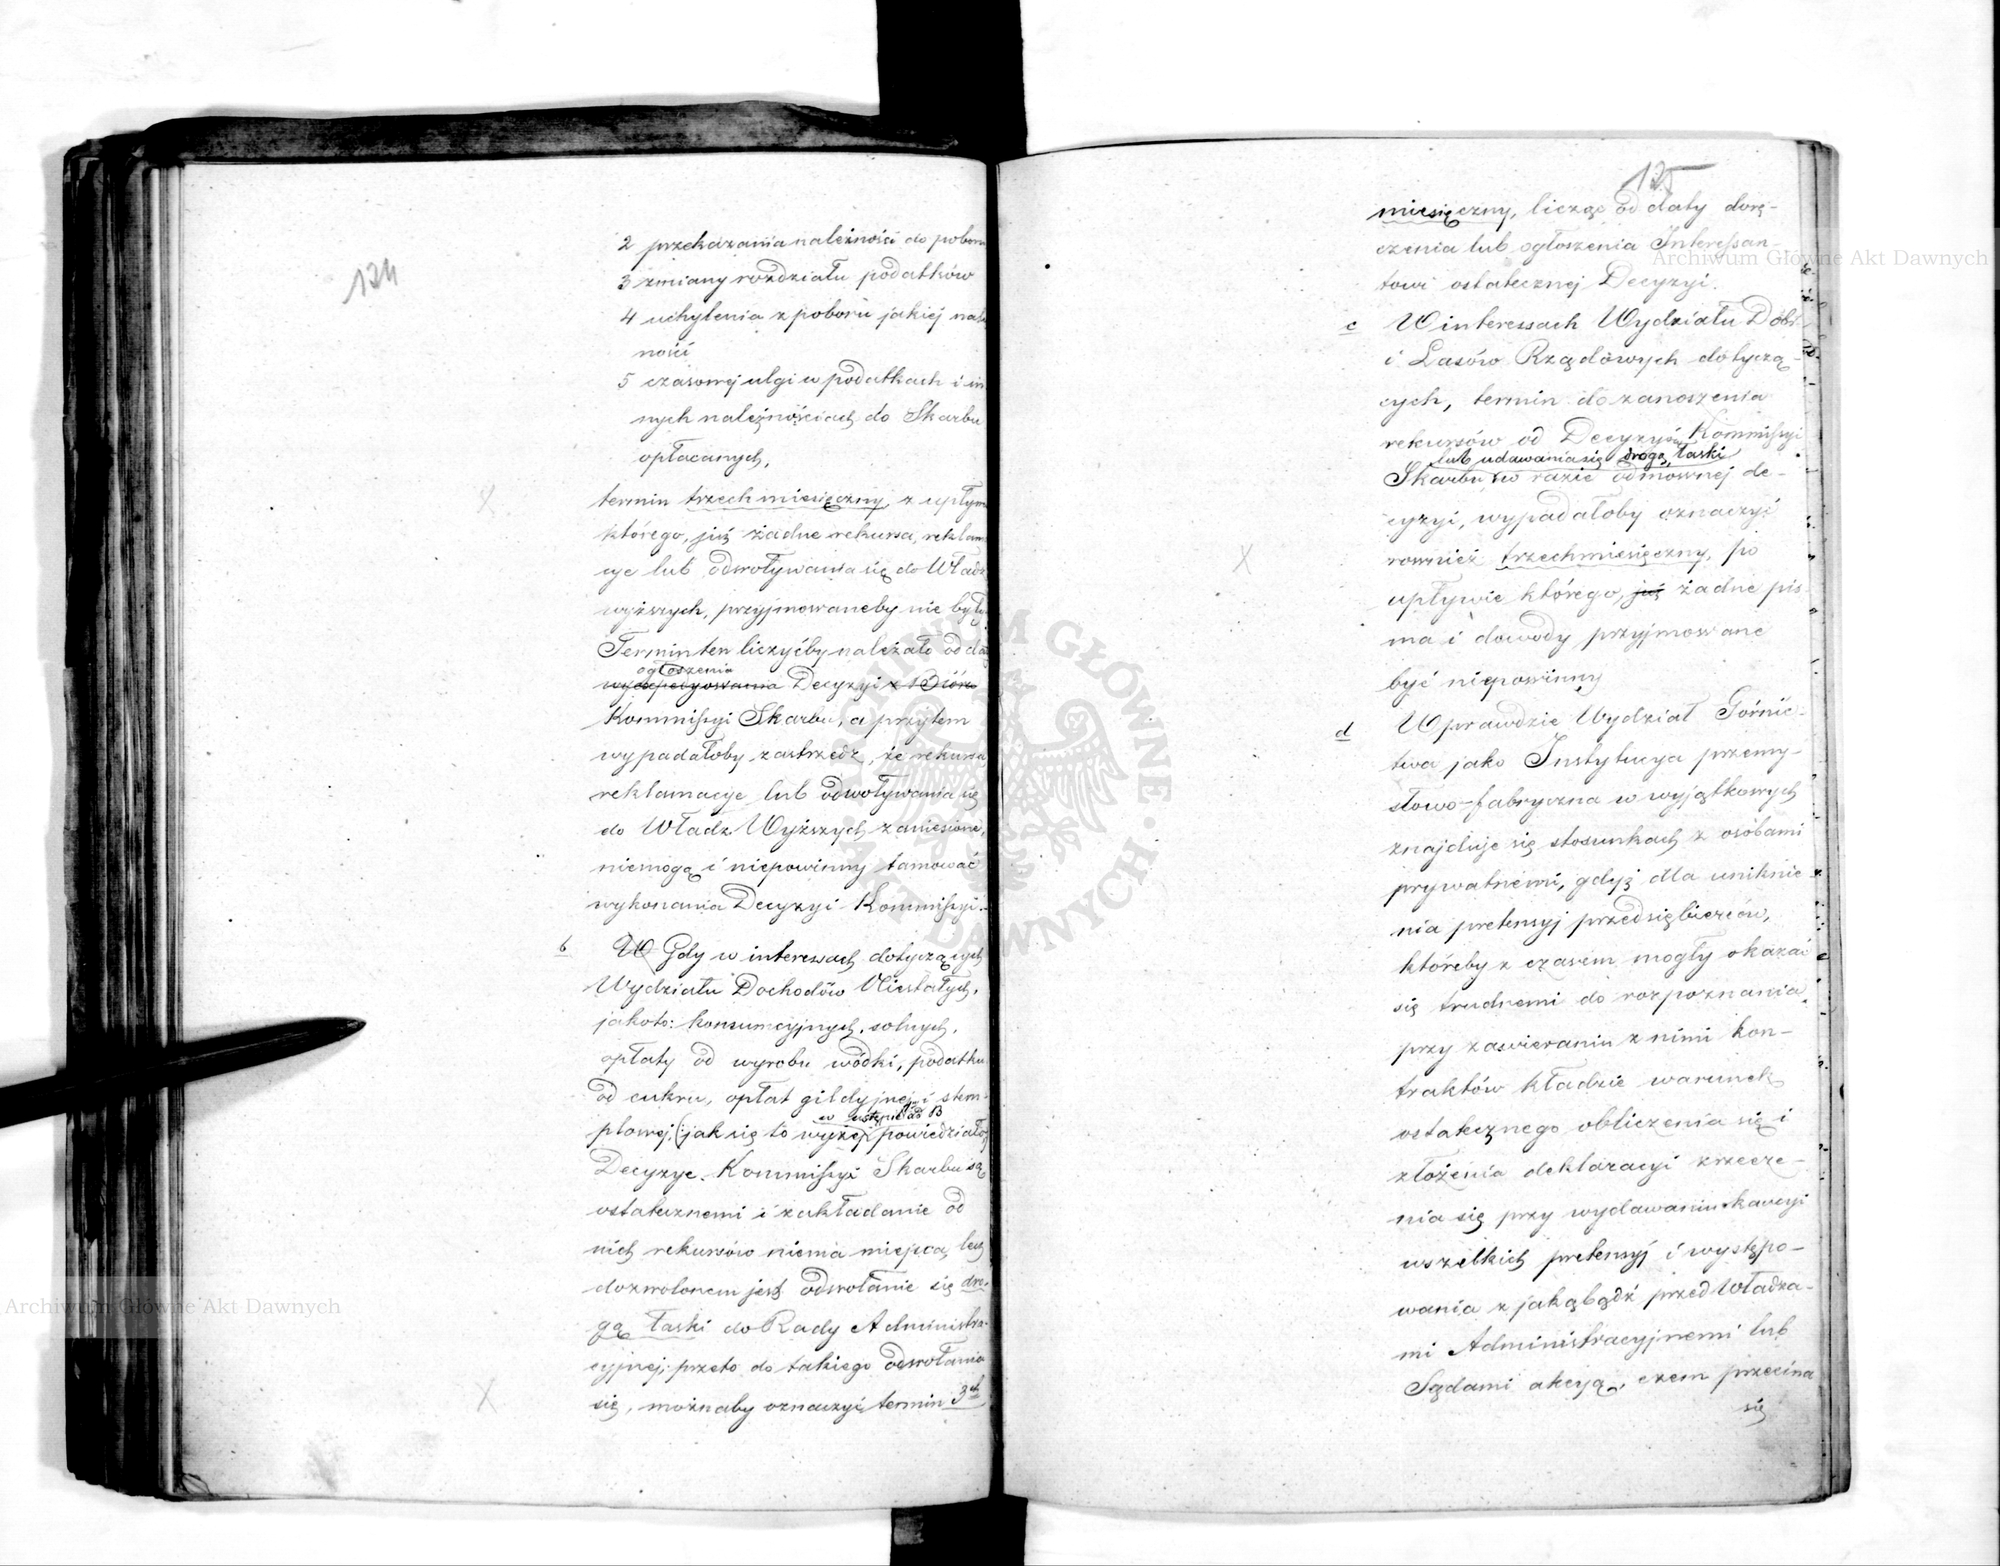 134
2 przekazania należności do poboru
3 zmiany rozdziału podatków
4 uchylenia z poboru jakiej nale
ności
5 czasowej ulgi w podatkach i in
nych należnościach do Skarbu
opłacanych,
termin trzech miesięczny, z upływ
którego, już żadne rekursa, reklam
cye lub odwoływania się do Władz
wyższych, przyjmowaneby nie były
Termin ten liczyćby należało od da
ogłoszenia
wyexpedyowania Decyzyi z Biór
Kommissyi Skarbu, a przytem
wypadałoby zastrzedz, że rekursa
reklamacye lub odwoływania się
do Władz Wyższych zaniesione,
niemogą i niepowinny tamować
wykonania Decyzyi Kommissyi.
b W Gdy w interessach dotyczących
Wydziału Dochodów Niestałych,
jakoto: konsumcyjnych, solnych,
opłaty od wyrobu wódki, podatku
od cukru, opłat gildyjnej i stem-
w wstępie ad B
plowej, (:jak się to wyżej powiedziało
Decyzye Kommissyi Skarbu są
ostatecznemi i zakładanie od
nich rekursów niema miejsca, lecz
dozwolonem jest odwołanie się dro-
gą łaski do Rady Administra-
cyjnej; przeto do takiego odwołania
się, możnaby oznaczyć termin 3ch
125
miesięczny, licząc od daty dorę-
czenia lub ogłoszenia Interessan-
towi ostatecznej Decyzyi.
c W interessach Wydziału Dóbr
i Lasów Rządowych dotyczą-
cych, termin do zanoszenia
rekursów od Decyzyów Kommissyi
lub udawania się drogą łaski
Skarbu, w razie odmownej de-
cyzyi, wypadałoby oznaczyć
rownież trzechmiesięczny, po
upływie którego, już żadne pis-
ma i dowody przyjmowane
być niepowinny
d Wprawdzie Wydział Górnic-
twa jako Instytucya przemy-
słowo-fabryczna w wyjątkowych
znajduje się stosunkach z osobami
prywatnemi, gdyż dla uniknie-
nia pretensyj przedsiębierców,
któreby z czasem mogły okazać
się trudnemi do rozpoznania,
przy zawieraniu z nimi kon-
traktów kładzie warunek
ostatecznego obliczenia się i
złożenia deklaracyi zrzecze-
nia się przy wydawaniu kaucyi
wszelkich pretensyj i występo-
wania z jakąbądź przed Władza-
mi Administracyjnemi lub
Sądami akcyą, czem przecina
się
Archiwum Główne Akt Dawnych
Archiwum Główne Akt Dawnych
ARCHIWUM GŁÓWNE AKT DAWNYCH